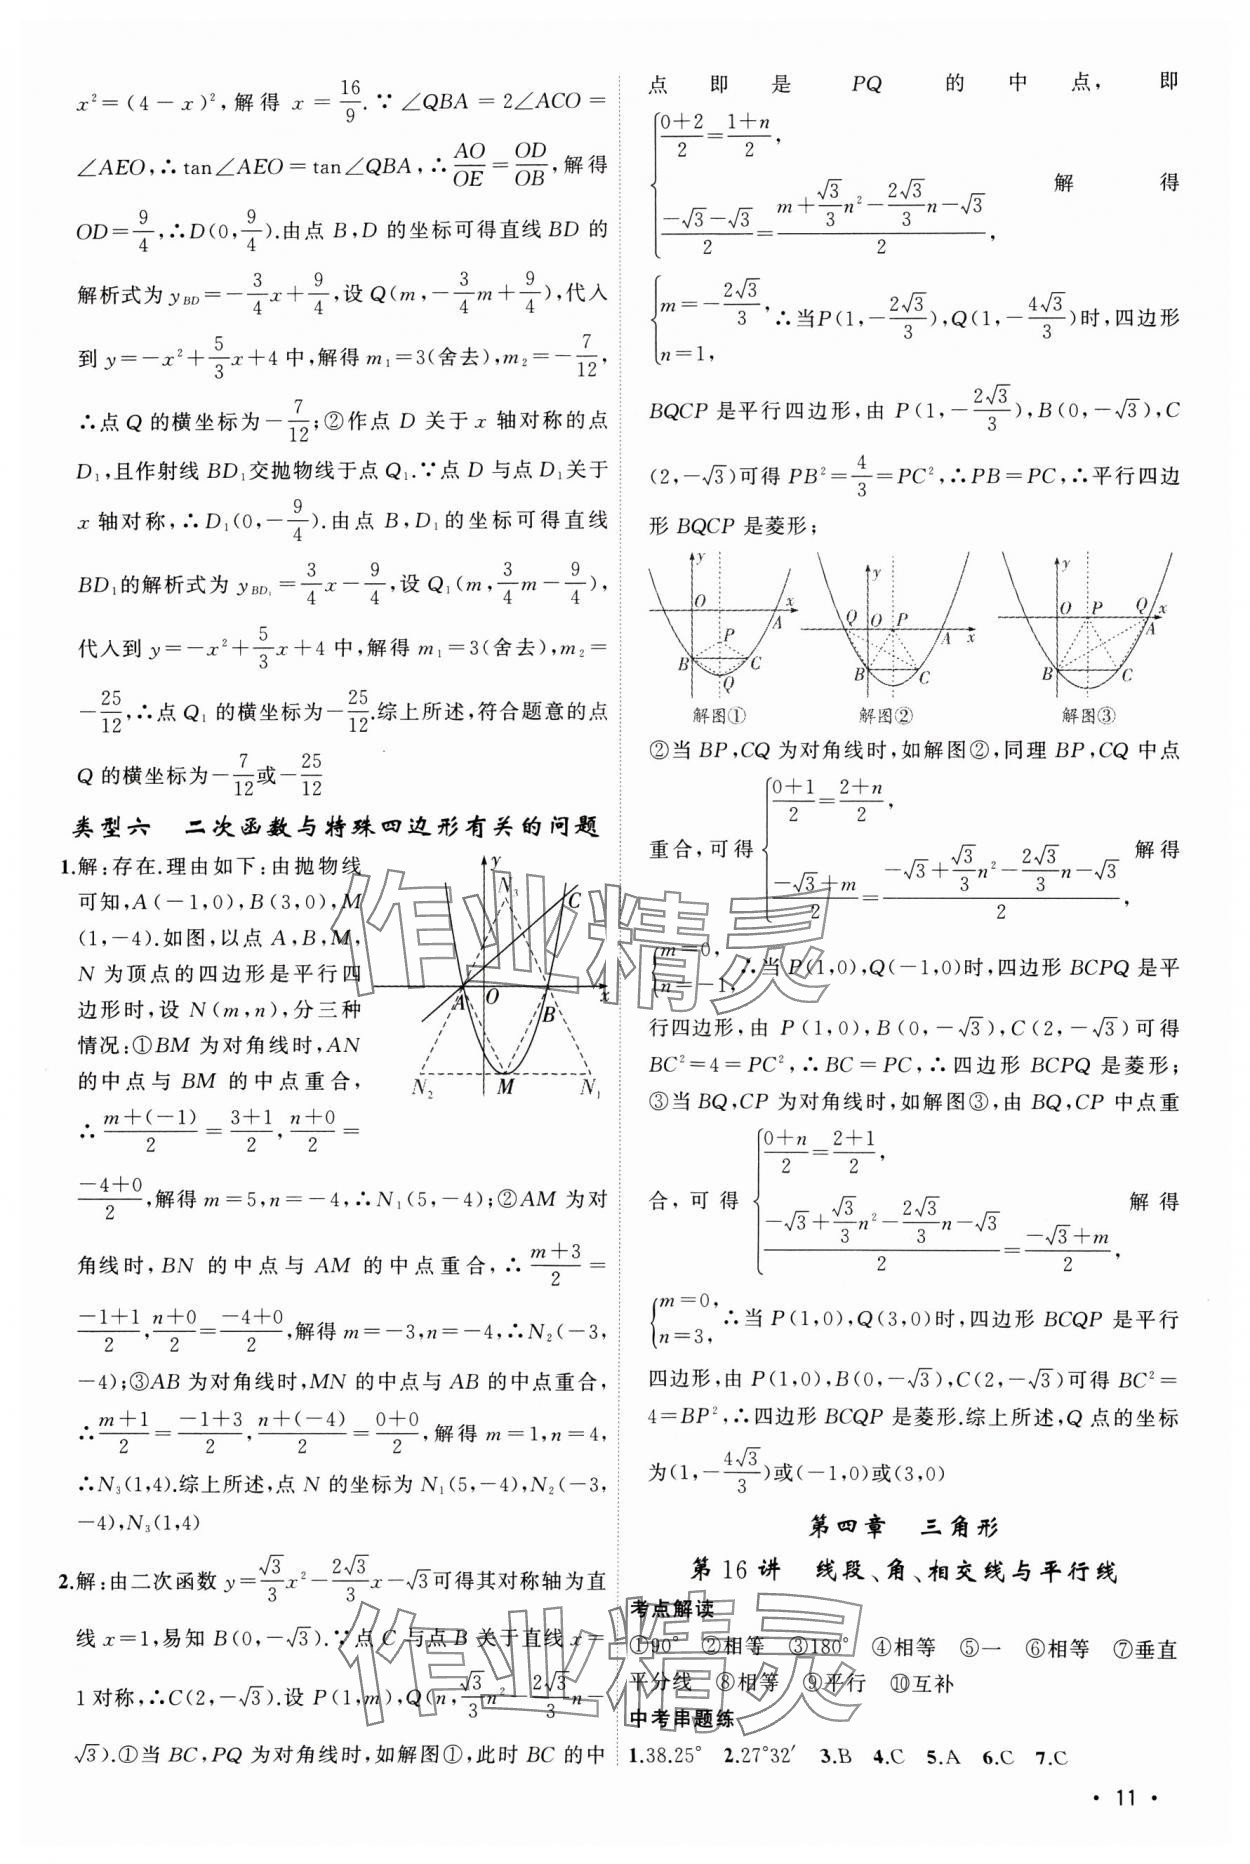 x²=(4-x)²,解得 x=16/9.∵∠QBA=2∠ACO=
∠AEO,∴tan∠AEO=tan∠QBA,∴AO/OE=OD/OB,解得
OD=9/4,∴D(0,9/4).由点 B,D 的坐标可得直线 BD 的
解析式为 y_BD=-3/4x+9/4,设 Q(m,-3/4m+9/4),代入
到 y=-x²+5/3x+4 中,解得 m₁=3(舍去),m₂=-7/12,
∴点 Q 的横坐标为-7/12;②作点 D 关于 x 轴对称的点
D₁,且作射线 BD₁交抛物线于点 Q₁.∵点 D 与点 D₁关于
x 轴对称,∴D₁(0,-9/4).由点 B,D₁的坐标可得直线
BD₁的解析式为 y_BD₁=3/4x-9/4,设 Q₁(m,3/4m-9/4),
代入到 y=-x²+5/3x+4 中,解得 m₁=3(舍去),m₂=
-25/12,∴点 Q₁的横坐标为-25/12.综上所述,符合题意的点
Q 的横坐标为-7/12或-25/12
类型六 二次函数与特殊四边形有关的问题
1.解:存在.理由如下:由抛物线
可知,A(-1,0),B(3,0),M
(1,-4).如图,以点 A,B,M,
N 为顶点的四边形是平行四
边形时,设 N(m,n),分三种
情况:①BM 为对角线时,AN
的中点与 BM 的中点重合,
∴(m+(-1))/2=(3+1)/2,(n+0)/2=
y N₃ C A O B x N₂ M N₁
(-4+0)/2,解得 m=5,n=-4,∴N₁(5,-4);②AM 为对
角线时,BN 的中点与 AM 的中点重合,∴(m+3)/2=
(-1+1)/2,(n+0)/2=(-4+0)/2,解得 m=-3,n=-4,∴N₂(-3,
-4);③AB 为对角线时,MN 的中点与 AB 的中点重合,
∴(m+1)/2=(-1+3)/2,(n+(-4))/2=(0+0)/2,解得 m=1,n=4,
∴N₃(1,4).综上所述,点 N 的坐标为 N₁(5,-4),N₂(-3,
-4),N₃(1,4)
2.解:由二次函数 y=√3/3x²-2√3/3x-√3可得其对称轴为直
线 x=1,易知 B(0,-√3).∵点 C 与点 B 关于直线 x=
1 对称,∴C(2,-√3).设 P(1,m),Q(n,√3/3n²-2√3/3n-
√3).①当 BC,PQ 为对角线时,如解图①,此时 BC 的中
点即是 PQ 的中点,即
{(0+2)/2=(1+n)/2,
(-√3-√3)/2=(m+√3/3n²-2√3/3n-√3)/2, 解得
{m=-2√3/3,
n=1, ∴当P(1,-2√3/3),Q(1,-4√3/3)时,四边形
BQCP 是平行四边形,由 P(1,-2√3/3),B(0,-√3),C
(2,-√3)可得 PB²=4/3=PC²,∴PB=PC,∴平行四边
形 BQCP 是菱形;
y O A x P B C Q
y Q O P A x B C
y O P Q x A B C
解图① 解图② 解图③
②当 BP,CQ 为对角线时,如解图②,同理 BP,CQ 中点
重合,可得{(0+1)/2=(2+n)/2,
(-√3+m)/2=(-√3+√3/3n²-2√3/3n-√3)/2, 解得
{m=0,
n=-1, ∴当 P(1,0),Q(-1,0)时,四边形 BCPQ 是平
行四边形,由 P(1,0),B(0,-√3),C(2,-√3)可得
BC²=4=PC²,∴BC=PC,∴四边形 BCPQ 是菱形;
③当 BQ,CP 为对角线时,如解图③,由 BQ,CP 中点重
合,可得{(0+n)/2=(2+1)/2,
(-√3+√3/3n²-2√3/3n-√3)/2=(-√3+m)/2, 解得
{m=0,
n=3, ∴当 P(1,0),Q(3,0)时,四边形 BCQP 是平行
四边形,由 P(1,0),B(0,-√3),C(2,-√3)可得 BC²=
4=BP²,∴四边形 BCQP 是菱形.综上所述,Q 点的坐标
为(1,-4√3/3)或(-1,0)或(3,0)
第四章 三角形
第16讲 线段、角、相交线与平行线
考点解读
①90° ②相等 ③180° ④相等 ⑤一 ⑥相等 ⑦垂直
平分线 ⑧相等 ⑨平行 ⑩互补
中考串题练
1.38.25° 2.27°32′ 3.B 4.C 5.A 6.C 7.C
·11·
作业精灵
作业精灵